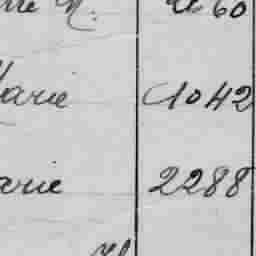 N. 60
Marie 1042
arie 2288